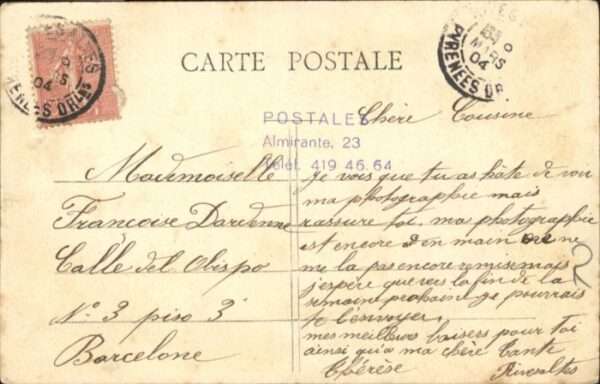 CARTE POSTALE
MARS
04
PYRENEES OR
04
POSTALES
Almirante, 23
Teléf. 419 46 64
Mademoiselle
Françoise Daredonne
Calle del Obispo
N° 3 piso 3
Barcelone
Chère Cousine
Je vois que tu as hâte de voir
ma photographie mais
rassure toi, ma photographie
est encore en main
me la pas encore remise mais
j'espère que vers la fin de la
semaine prochaine je pourrais
te l'envoyer.
mes meilleurs baisers pour toi
ainsi qu'a ma chère tante
Thérèse Rivesaltes